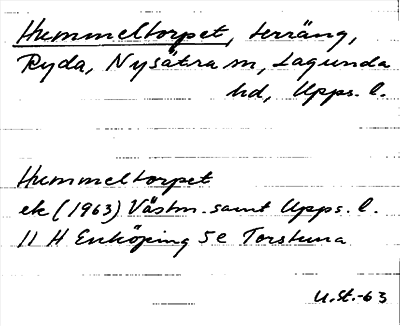 Hummeltorpet, terräng,
Ryda, Nysätra sn, Lagunda
hd, Upps. l.
Hummeltorpet
ek (1963) Västm. samt Upps. l.
11 H Enköping 5e Torstuna
U.St.-63